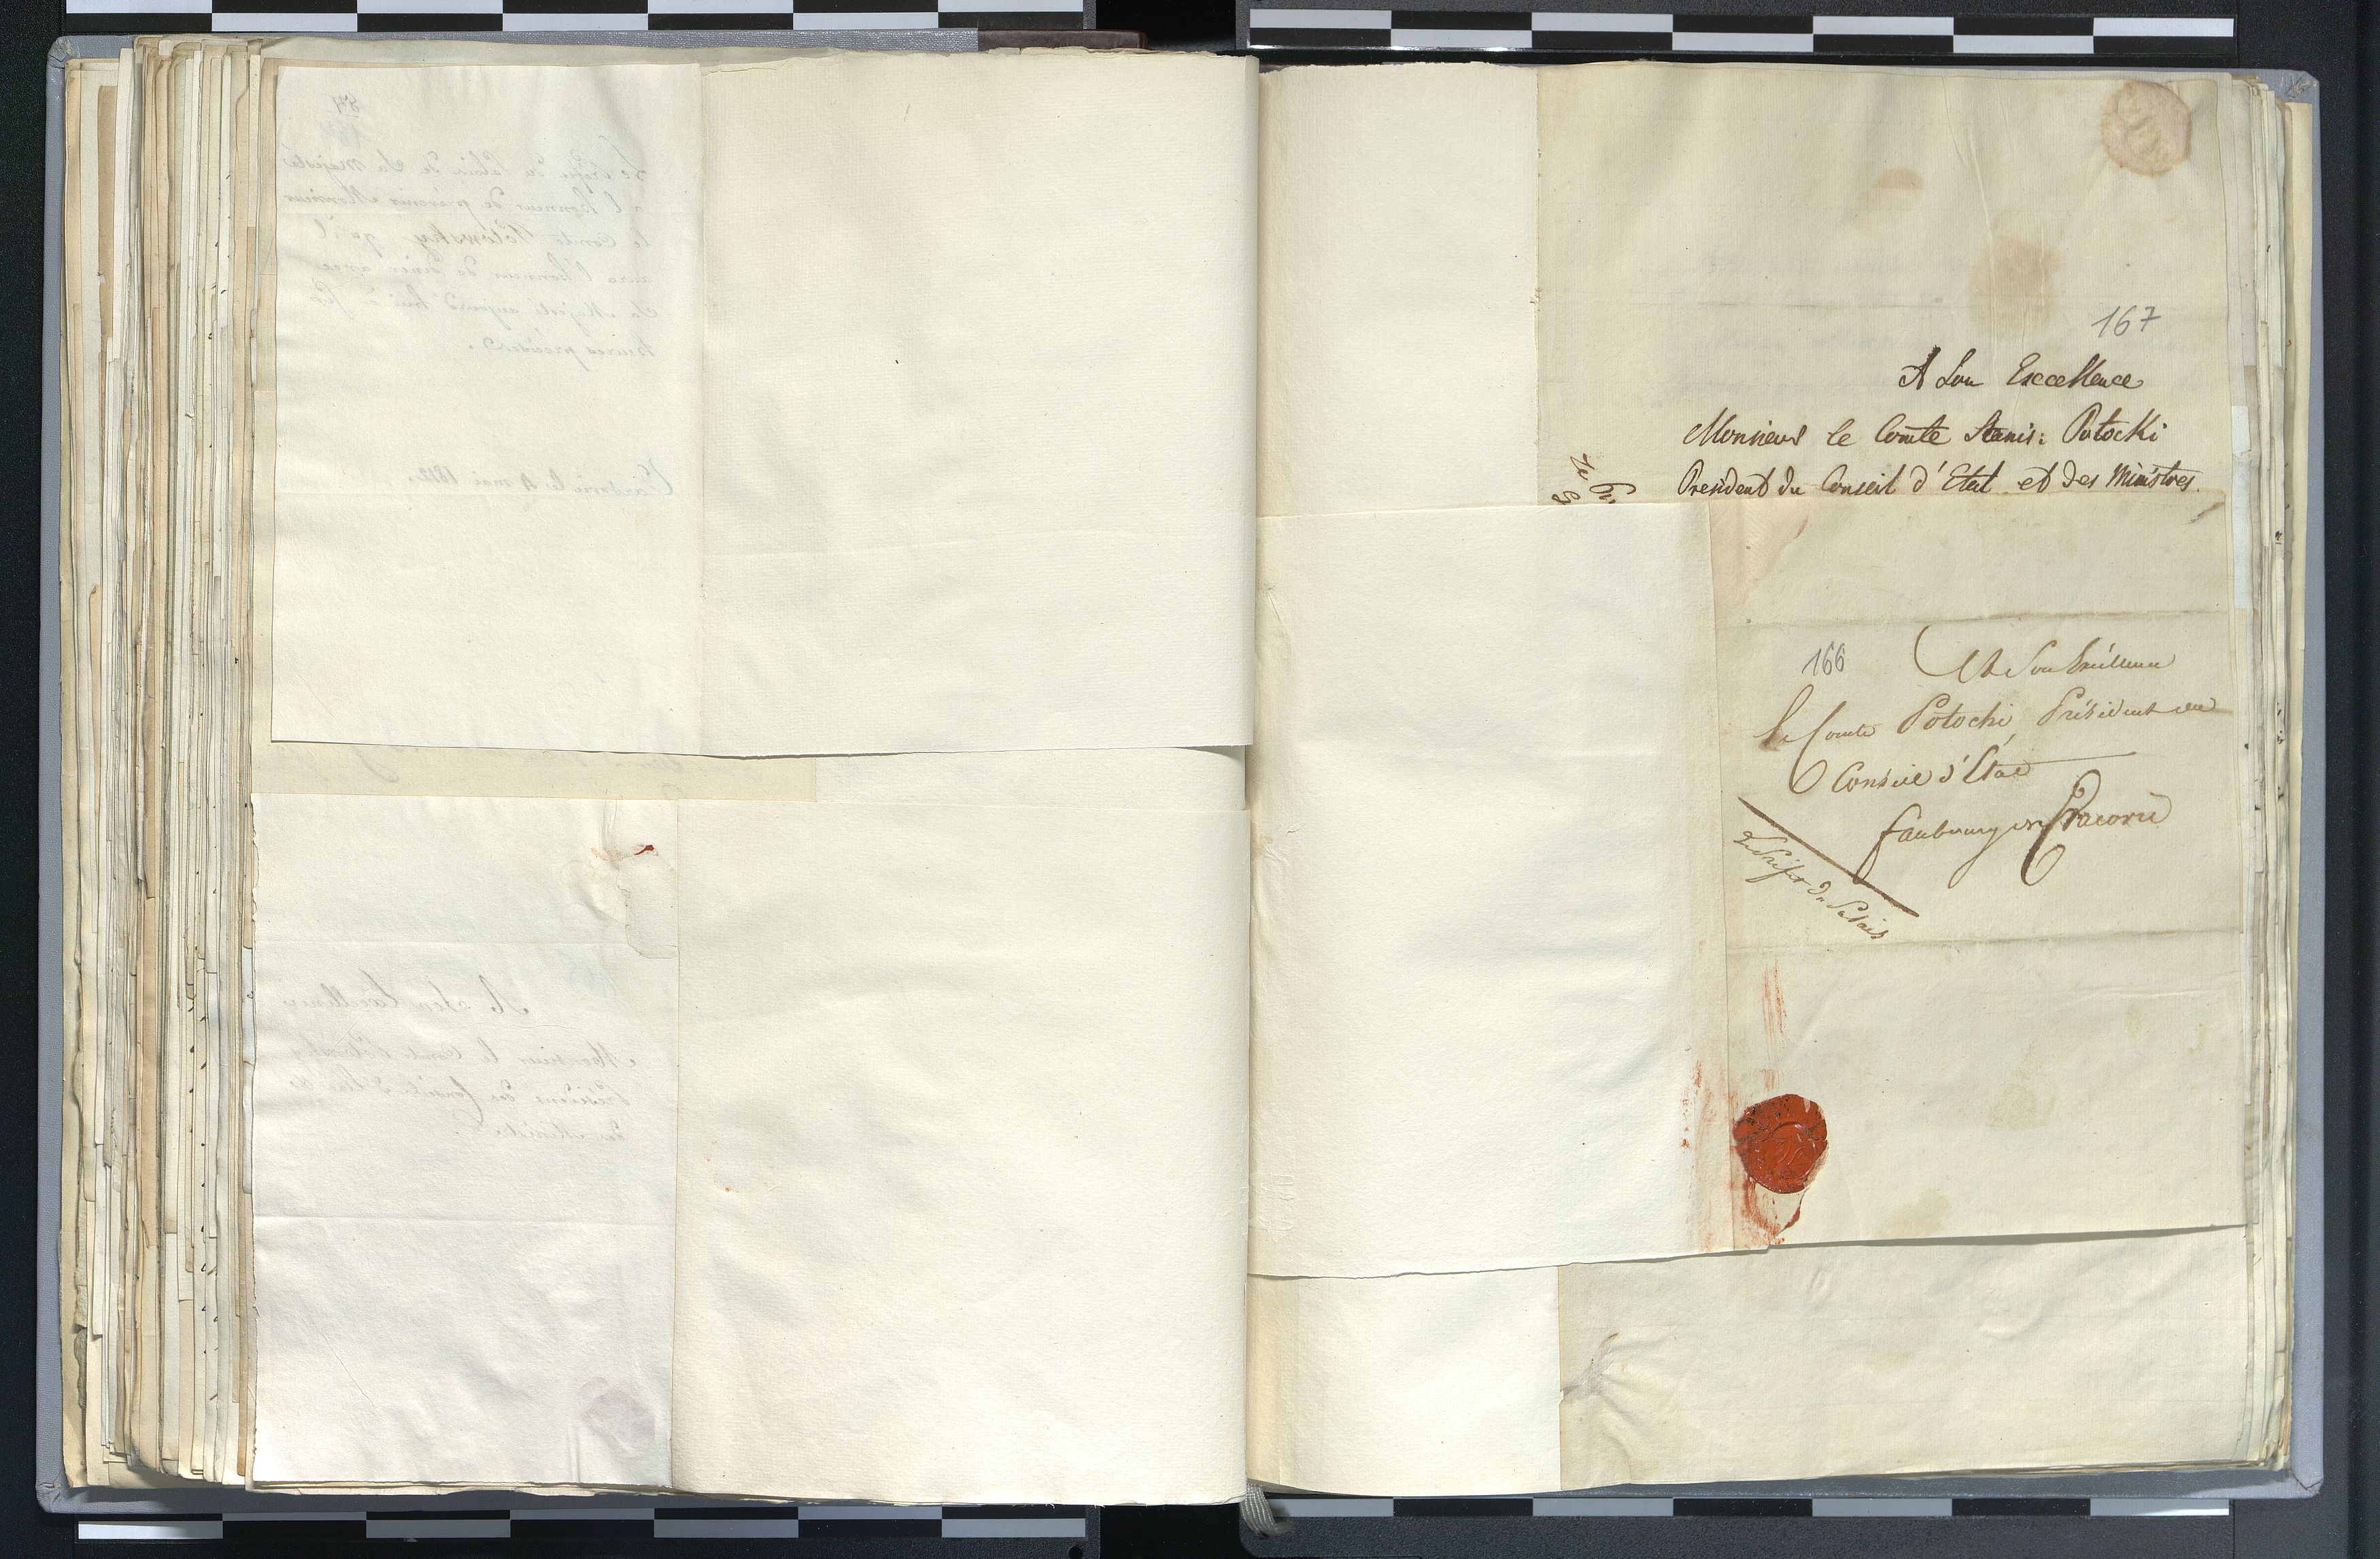 167
A Son Excellence
Monsieur le Comte Stanis: Potocki
President du Conseil d'Etat et des Ministres.
166
A Son Excellence
Le Comte Potocki, Président du
Conseil d'Etat
faubourg de Cracovie
Le Préfet du Palais
84
Le Préfet du Palais de Sa Majesté
a l'honneur de prévenir Monsieur
le Comte Potowsky qu'il
aura l'honneur de diner avec
Sa Majesté aujourd'hui à
heures précises.
le 4 mai 1812.
A Son Excellence
Monsieur le Comte
Président du Conseil d'Etat &
des Ministres.